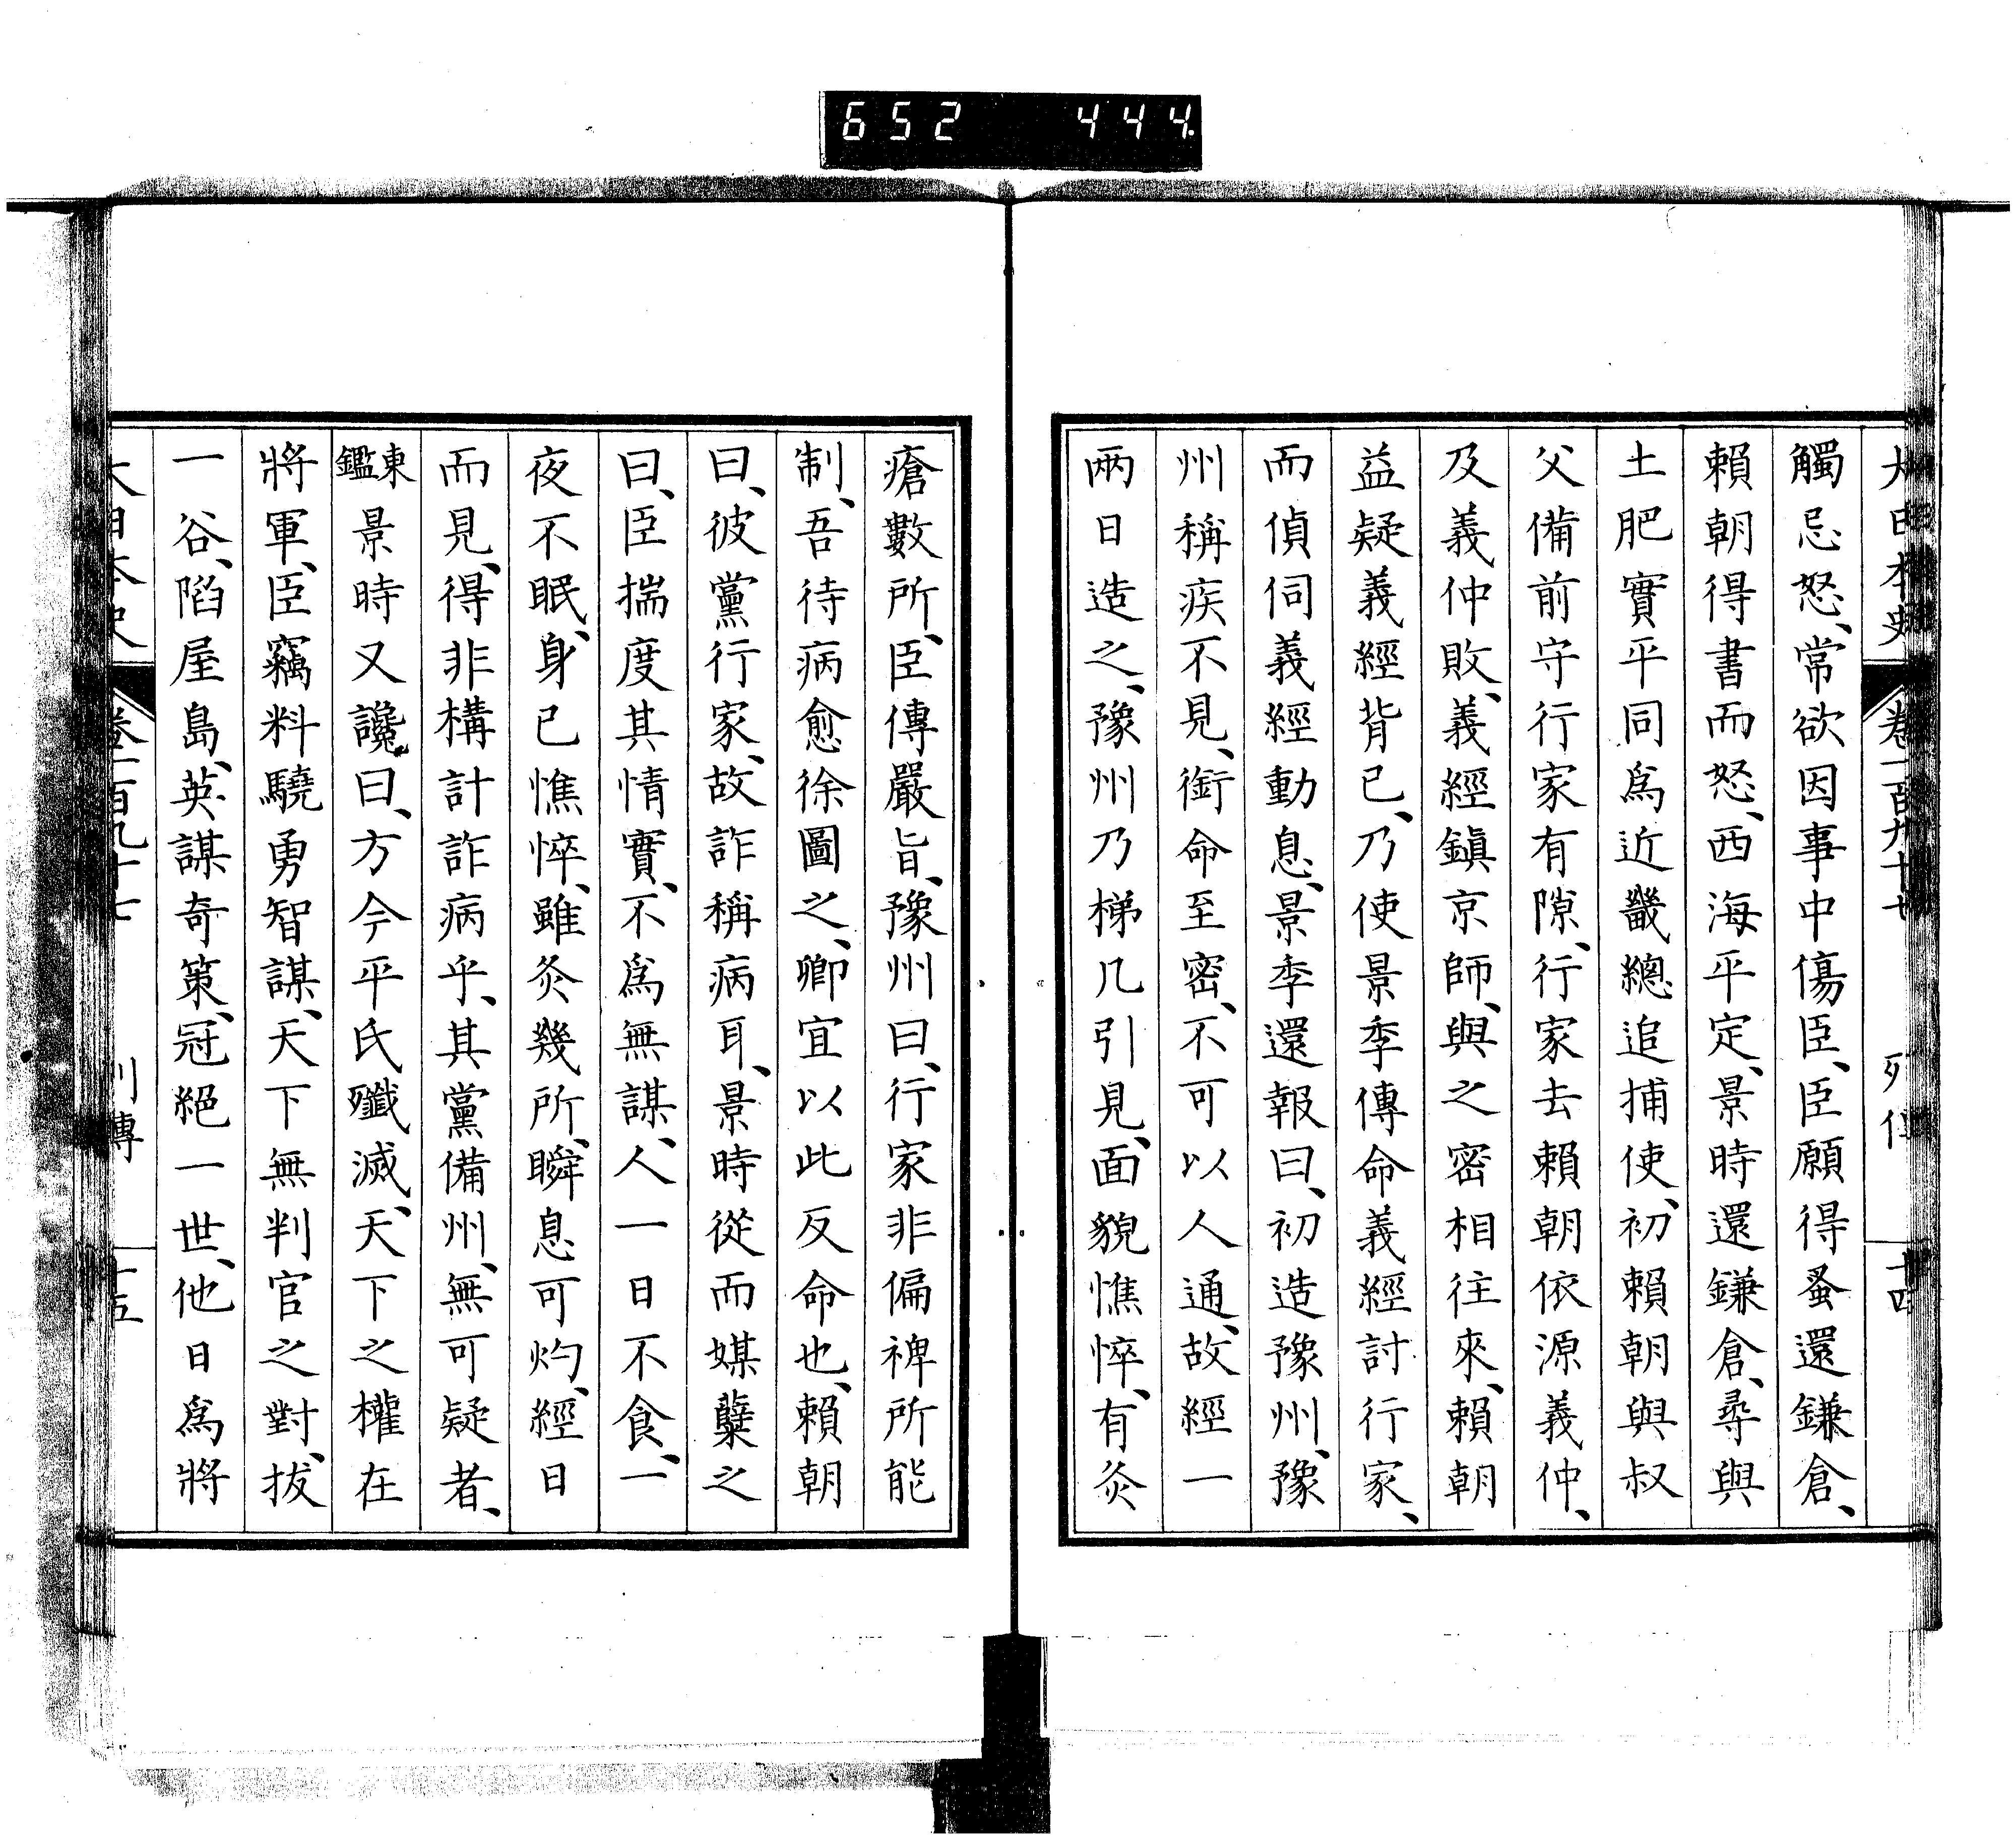 652 444.
大日本史 卷一百九十七 列傳 十四
觸忌怒、常欲因事中傷臣、臣願得蚤還鎌倉、
賴朝得書而怒、西海平定、景時還鎌倉、尋與
土肥實平同爲近畿總追捕使、初賴朝與叔
父備前守行家有隙、行家去賴朝依源義仲、
及義仲敗、義經鎭京師、與之密相往來、賴朝
益疑義經背已、乃使景季傳命義經討行家、
而偵伺義經動息、景季還報曰、初造豫州、豫
州稱疾不見、銜命至密、不可以人通、故經一
兩日造之、豫州乃梯几引見、面貌憔悴、有灸
瘡數所、臣傳嚴旨、豫州曰、行家非偏裨所能
制、吾待病愈徐圖之、卿宜以此反命也、賴朝
曰、彼黨行家、故詐稱病耳、景時從而媒蘖之
曰、臣揣度其情實、不爲無謀、人一日不食、一
夜不眠、身已憔悴、雖灸幾所、瞬息可灼、經日
而見、得非構計詐病乎、其黨備州、無可疑者、
東鑑景時又讒曰、方今平氏殲滅、天下之權在
將軍、臣竊料驍勇智謀、天下無判官之對、拔
一谷、陷屋島、英謀奇策、冠絕一世、他日爲將
大日本史 卷一百九十七 列傳 十五